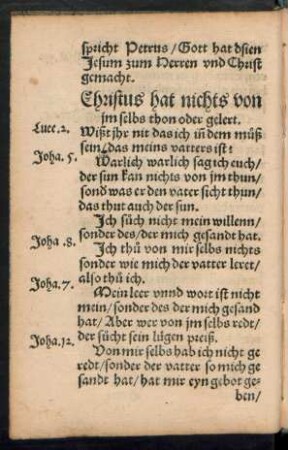 spricht Petrus/Gott hat dsien
Jesum zum Herren vnd Christ
gemacht.
Christus hat nichts von
jm selbs thon oder gelert.
Luce.2.
Wißt jhr nit das ich in dem můß
sein/das meins vatters ist?
Joha.5.
Warlich warlich sag ich euch/
der sun kan nichts von jm thun/
sond was er den vater sicht thun/
das thut auch der sun.
Ich sůch nicht mein willenn/
sonder des/der mich gesandt hat.
Joha.8.
Ich thů von mir selbs nichts
sonder wie mich der vatter leret/
also thů ich.
Joha.7.
Mein leer vnnd wort ist nicht
mein/sonder des der mich gesand
hat/Aber wer von jm selbs redt/
der sůcht sein lügen preiß.
Joha.12.
Von mir selbs hab ich nicht ge
redt/sonder der vatter so mich ge
sandt hat/hat mir eyn gebot ge-
ben/